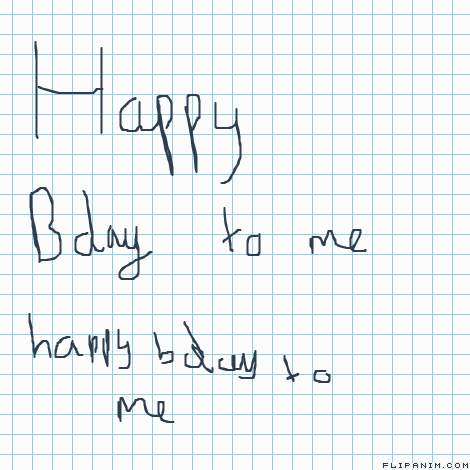 Happy
Bday to me
happy bday to
me
FLIPANIM.COM